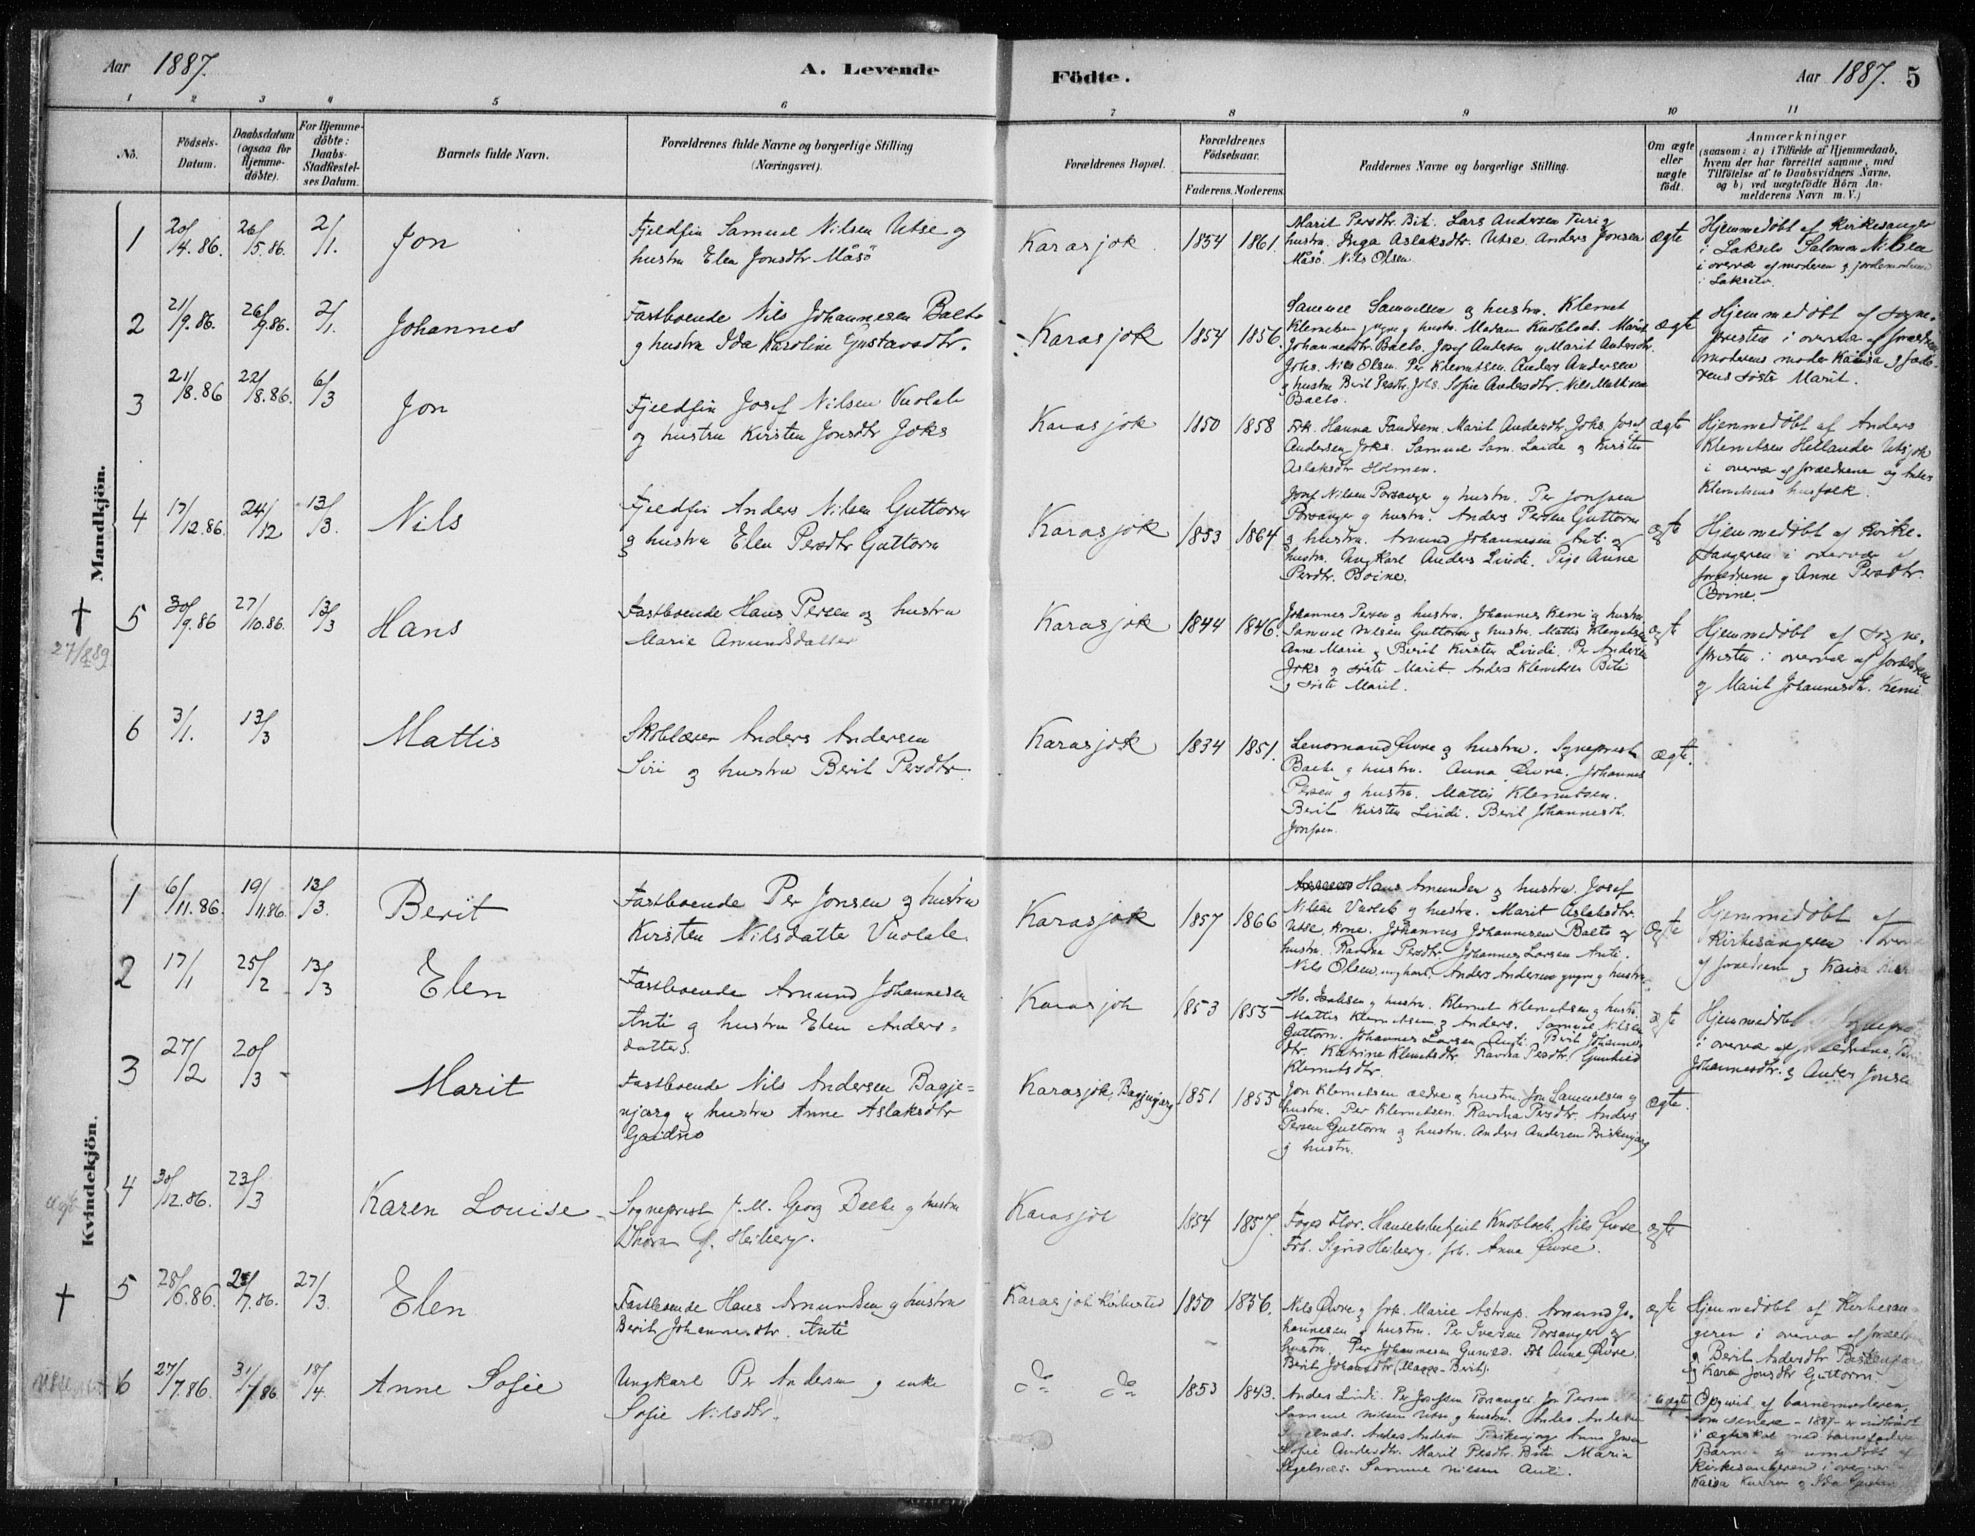 Aar 1887.
A. Levende
Födte.
Aar 1887. 5
1 2 3 4 5 6 7 8 9 10 11
No.
Födsels-
Datum.
Daabsdatum
(ogsaa for
Hjemme-
döbte).
For Hjemme-
döbte:
Daabs-
Stadfæstel-
ses Datum.
Barnets fulde Navn.
Forældrenes fulde Navne og borgerlige Stilling
(Næringsvei).
Forældrenes Bopæl.
Forældrenes
Födselsaar.
Faderens. Moderens.
Faddernes Navne og borgerlige Stilling.
Om ægte
eller
uægte
födt.
Anmærkninger
(saasom: a) i Tilfælde af Hjemmedaab,
hvem der har forrettet samme, med
Tilföielse af to Daabsvidners Navne,
og b) ved uægtefödte Börn An-
melderens Navn m. V.)
Mandkjön.
1 20/4.86. 26/5.86. 2/1. Jon
Fjeldfin Samuel Nilsen Utse og
hustru Elen Jonsdtr Måsö
Karasjok. 1854 1861
Marit Persdtr. Biti. Lars Andersen Turi og
hustru. Inga Aslaksdtr. Utse. Anders Jonsen
Måsö. Nils Olsen.
ægte
Hjemmedöbt af Kirkesanger
i Lakselv Salomon Nilsen
i overvær af moderen og jordemoderen
i Lakselv.
2 21/9.86. 26/9.86. 2/1. Johannes
Fastboende Nils Johannesen Balto
og hustru Ida Karoline Gustavsdtr.
Karasjok 1854 1856.
Samuel Samuelsen og hustru. Klemet
Klemetsen yngre og hustr. Madam Knobloch. Marit
Johannesdtr. Balto. Josef Andersen og Marit Andersdtr.
Joks. Nils Olsen. Per Klemetsen. Anders Andersen
og hustru Berit Persdtr. Joks. Sofie Andersdtr. Nils Mathisen
Balto.
ægte
Hjemmedöbt af sogne-
præsten i overvær af forældrene
moderens moder Kaisa og fade-
rens söster Marit.
3 21/8.86 22/8.86. 6/3 Jon
Fjeldfin Josef Nilsen Vuolab
og hustru Kirsten Jonsdtr Joks
Karasjok 1850 1858
Frk. Hanna Fandrem. Marit Andersdtr. Joks. Josef
Andersen Joks. Samuel Sam. Lindi og Kirsten
Aslaksdtr Holmen.
ægte
Hjemmedöbt af Anders
Klemetsen Hellander Utsjok
i overvær af forældrene og Anders
Klemetsens husfolk.
4 17/12.86. 24/12 13/3. Nils
Fjeldfin Anders Nilsen Guttorm
og hustru Elen Persdtr Guttorm
Karasjok 1853 1864
Josef Nilsen Porsanger og hustru. Per Jonssen
Porsanger og hustru. Anders Persen Guttorm
og hustru. Amund Johannesen Anti og
hustru. Ungkarl Anders Lindi. Pige Anne
Persdtr. Boine.
ægte
Hjemmedöbt af Kirke-
sangeren i overvær af
forældrene og Anne Persdtr.
Boine.
† 27/889
5 30/9.86 27/10.86. 13/3 Hans
Fastboende Hans Persen og hustru
Marie Amundsdatter
Karasjok 1844 1846.
Johannes Persen og hustru. Johannes Kemi og hustru
Samuel Nilsen Guttorm og hustru. Mattis Klemetsen
Anne Marie og Berit Kirsten Lindi. Per Andersen
Joks og söster Marit. Anders Klemetsen Biti
og söster Marit.
ægte
Hjemmedöbt af sogne-
præsten i overvær af forældrene
og Marit Johannesdtr. Kemi
6 3/1. 13/3 Mattis
Skolelærer Anders Andersen
Siri og hustru Berit Persdtr.
Karasjok 1834 1851.
Lensmand Øvre og hustru. Sogneprest
Balke og hustru. Anna Øvre. Johannes
Persen og hustru. Mattis Klemetsen.
Berit Kirsten Lindi. Berit Johannesdtr.
Jonssen.
ægte.
Kvindekjön.
1 6/11.86. 19/11.86. 13/3. Berit
Fastboende Per Jonsen og hustru
Kirsten Nilsdatter Vuolab.
Karasjok 1857 1866
Hans Amundsen og hustru. Josef
Nilsen Vuolab og hustru. Marit Aslaksdtr.
Utse, kone. Johannes Johannesen Balto og
hustru. Ravna Persdtr. Johannes Larsen Anti.
Nils Olsen, ungkarl. Anders Andersen yngre og hustru.
ægte
Hjemmedöbt af
Kirkesangeren
af forældrene og Kaisa
2 17/1 25/2 13/3 Elen
Fastboende Amund Johannesen
Anti og hustru Elen Anders-
datter.
Karasjok 1853 1855
M. Isaksen og hustru. Klemet Klemetsen og hustr.
Mattis Klemetsen og Anders. Samuel Nilsen
Guttorm. Johannes Larsen Anti. Berit Johannes-
dtr. Katrine Klemetsdtr. Ravna Persdtr. Gunhild
Klemetsdtr.
ægte
Hjemmedöbt
i overvær af forældrene,
Johannesdtr. og Anders Jonsen
3 27/2 20/3 Marit
Fastboende Nils Andersen Bagje-
njarg og hustru Anne Aslaksdtr
Gaidno
Karasjok, Bagjenjarg 1851 1855
Jon Klemetsen ældre og hustru. Jon Samuelsen og
hustru. Per Klemetsen. Ravna Persdtr. Anders
Persen Guttorm og hustru. Anders Andersen Biskenjarg
og hustru.
ægte.
4 30/12.86. 23/3 Karen Louise
Sogneprest J. M. Georg Balke og hustru
Thora f. Heiberg.
Karasjok 1854 1857.
Foged Flor. Handelsbetjent Knobloch. Nils Øvre.
Frk. Sigrid Heiberg. frk. Anna Øvre.
ægte
†
5 28/6.86. 7.86. 27/3. Elen
Fastboende Hans Amundsen og hustru
Berit Johannesdtr. Anti
Karasjok Kirkested 1850 1856.
Nils Øvre og frk. Marie Astrup. Amund Jo-
hannesen og hustru. Per Iversen Porsanger og
hustru. Per Johannesen Gunild. Frk Anna Øvre.
Berit Johansdtr.
ægte
Hjemmedöbt af Kirkesan-
geren i overvær af forældrene
og Berit Andersdtr Biskenjarg
og Kara Jonsdtr Guttorm.
6 27/7.86. 31/7.86 18/4. Anne Sofie
Ungkarl Per Andersen og enke
Sofie Nilsdtr.
Do Do 1853 1843.
Anders Lindi. Per Josefsen Porsanger. Jon Persen
Samuel Nilsen Utse og hustru. Anders Andersen
Anders Andersen Biskenjarg Anne Jonsen
Sofie Andersdtr. Marit Persdtr Biti Maria
Segelnæs. Samuel Nilsen Anti.
uægte
Opgivet af barnemoderen,
som senere - 1887 - er indtrådt
i ægteskab med barnefaderen
Barnet
kirkesangeren i overvær
Kaisa og Ida